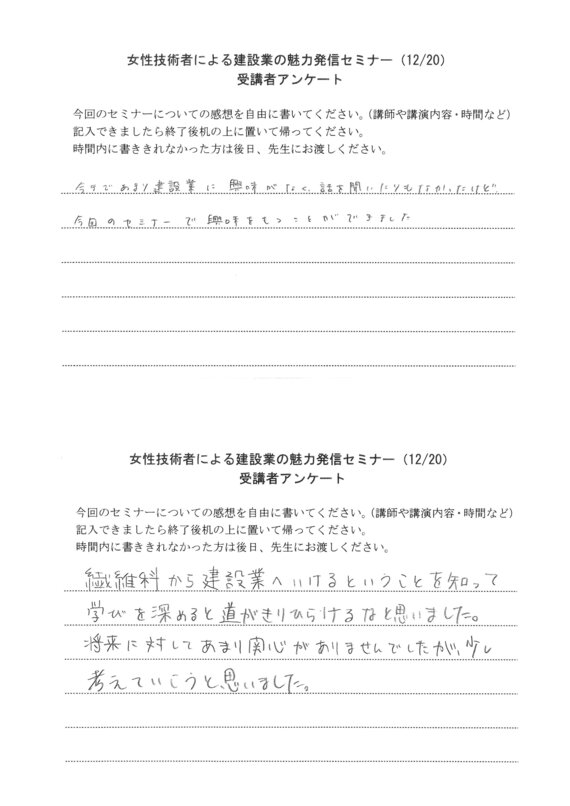 女性技術者による建設業の魅力発信セミナー（12/20）
受講者アンケート
今回のセミナーについての感想を自由に書いてください。（講師や講演内容・時間など）
記入できましたら終了後机の上に置いて帰ってください。
時間内に書ききれなかった方は後日、先生にお渡しください。
今まであまり建設業に興味がなく、話を聞いたりもなかったけど
今回のセミナーで興味をもつことができました
女性技術者による建設業の魅力発信セミナー（12/20）
受講者アンケート
今回のセミナーについての感想を自由に書いてください。（講師や講演内容・時間など）
記入できましたら終了後机の上に置いて帰ってください。
時間内に書ききれなかった方は後日、先生にお渡しください。
繊維科から建設業へいけるということを知って
学びを深めると道がきりひらけるなと思いました。
将来に対してあまり関心がありませんでしたが、少し
考えていこうと思いました。